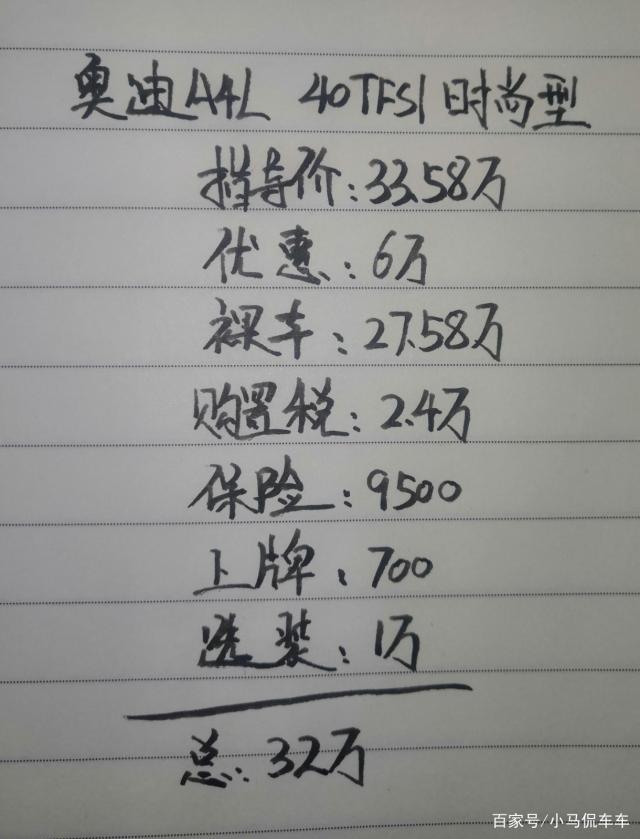 奥迪A4L 40TFSI时尚型
指导价:33.58万
优惠:6万
裸车:27.58万
购置税:2.4万
保险:9500
上牌:700
选装:1万
总:32万
百家号/小马侃车车